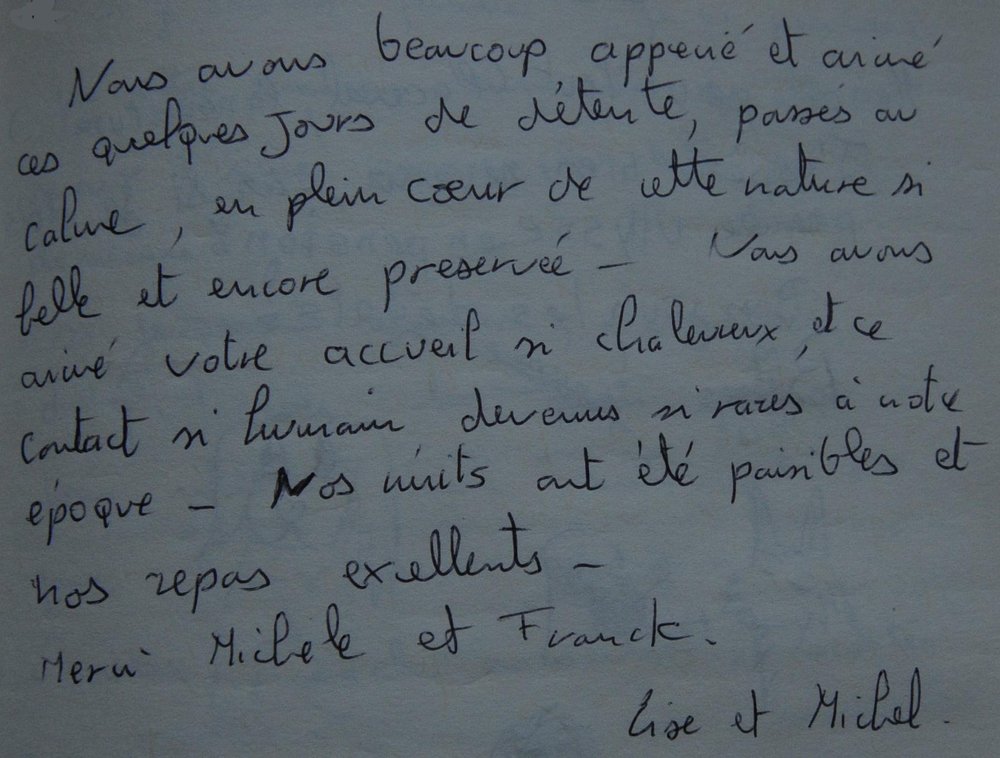 Nous avons beaucoup apprécié et aimé
ces quelques jours de détente, passés au
calme, en plein cœur de cette nature si
belle et encore preservée - Nous avons
aimé votre accueil si chaleureux, et ce
contact si humain devenus si rares à notre
époque - Nos nuits ont été paisibles et
nos repas exellents -
Merci Michèle et Franck.
Lise et Michel.